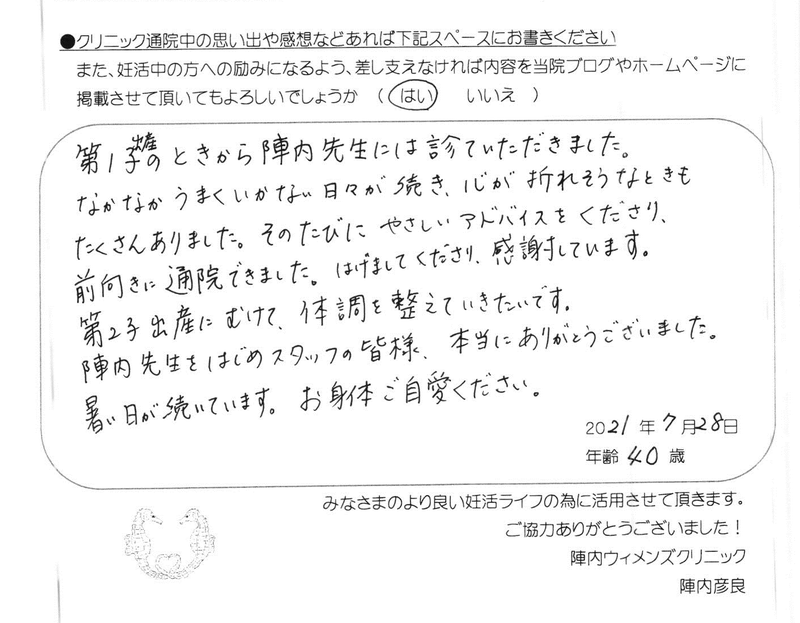 ●クリニック通院中の思い出や感想などあれば下記スペースにお書きください
また、妊活中の方への励みになるよう、差し支えなければ内容を当院ブログやホームページに
掲載させて頂いてもよろしいでしょうか （ はい　いいえ ）
第1子出産のときから陣内先生には診ていただきました。
なかなかうまくいかない日々が続き、心が折れそうなときも
たくさんありました。そのたびにやさしいアドバイスをくださり、
前向きに通院できました。はげましてくださり、感謝しています。
第2子出産にむけて、体調を整えていきたいです。
陣内先生をはじめスタッフの皆様、本当にありがとうございました。
暑い日が続いています。お身体ご自愛ください。
2021年7月28日
年齢 40 歳
みなさまのより良い妊活ライフの為に活用させて頂きます。
ご協力ありがとうございました！
陣内ウィメンズクリニック
陣内彦良